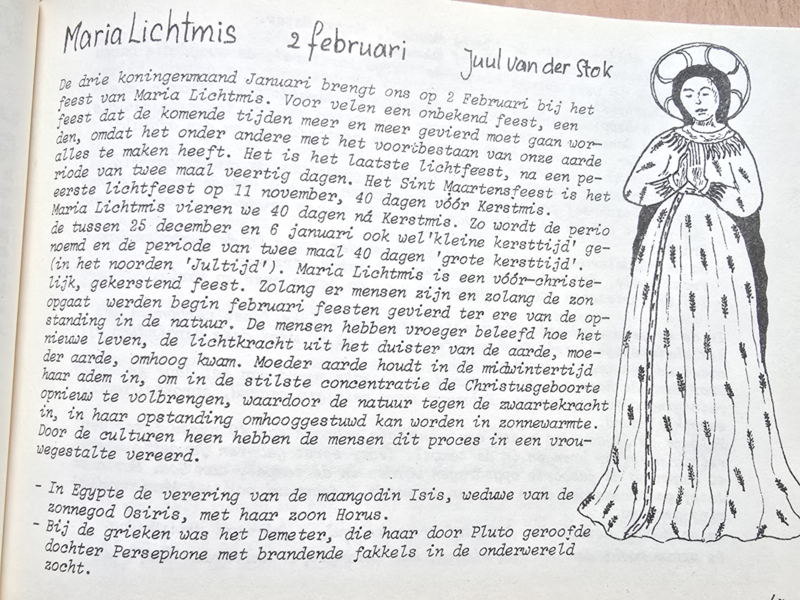 Maria Lichtmis 2 februari Juul van der Stok
De drie koningenmaand Januari brengt ons op 2 Februari bij het
feest van Maria Lichtmis. Voor velen een onbekend feest, een
feest dat de komende tijden meer en meer gevierd moet gaan wor-
den, omdat het onder andere met het voortbestaan van onze aarde
alles te maken heeft. Het is het laatste lichtfeest, na een pe-
riode van twee maal veertig dagen. Het Sint Maartensfeest is het
eerste lichtfeest op 11 november, 40 dagen vóór Kerstmis.
Maria Lichtmis vieren we 40 dagen ná Kerstmis. Zo wordt de perio
de tussen 25 december en 6 januari ook wel 'kleine kersttijd' ge-
noemd en de periode van twee maal 40 dagen 'grote kersttijd'.
(in het noorden 'Jultijd'). Maria Lichtmis is een vóór-christe-
lijk, gekerstend feest. Zolang er mensen zijn en zolang de zon
opgaat werden begin februari feesten gevierd ter ere van de op-
standing in de natuur. De mensen hebben vroeger beleefd hoe het
nieuwe leven, de lichtkracht uit het duister van de aarde, moe-
der aarde, omhoog kwam. Moeder aarde houdt in de midwintertijd
haar adem in, om in de stilste concentratie de Christusgeboorte
opnieuw te volbrengen, waardoor de natuur tegen de zwaartekracht
in, in haar opstanding omhooggestuwd kan worden in zonnewarmte.
Door de culturen heen hebben de mensen dit proces in een vrou-
wegestalte vereerd.
- In Egypte de verering van de maangodin Isis, weduwe van de
zonnegod Osiris, met haar zoon Horus.
- Bij de grieken was het Demeter, die haar door Pluto geroofde
dochter Persephone met brandende fakkels in de onderwereld
zocht.